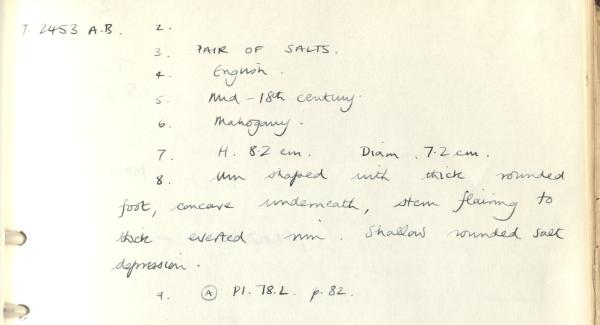 T. 2453 A.B. 2.
3. PAIR OF SALTS.
4. English.
5. Mid-18th century.
6. Mahogany.
7. H. 8.2 cm. Diam. 7.2 cm.
8. Urn shaped with thick rounded
foot, concave underneath, stem flairing to
thick everted rim. Shallow rounded salt
depression.
9. Ⓐ Pl. 78.L. p. 82.